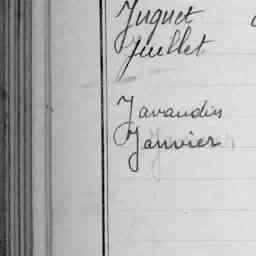 Juquet
Juillet
Javaudin
Janvier